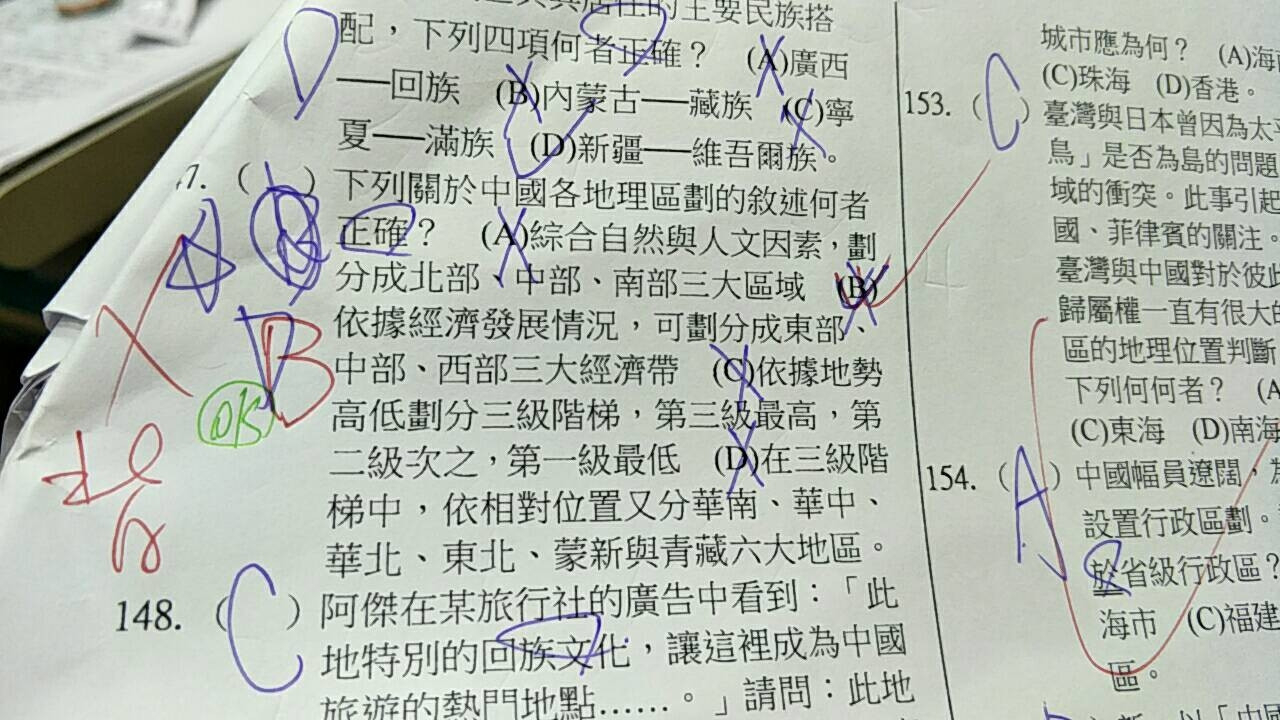 居住的主要民族搭
配，下列四項何者正確？ (A)廣西
──回族 (B)內蒙古──藏族 (C)寧
夏──滿族 (D)新疆──維吾爾族。
D
7. ( ) 下列關於中國各地理區劃的敘述何者
正確？ (A)綜合自然與人文因素，劃
分成北部、中部、南部三大區域 (B)
依據經濟發展情況，可劃分成東部、
中部、西部三大經濟帶 (C)依據地勢
高低劃分三級階梯，第三級最高，第
二級次之，第一級最低 (D)在三級階
梯中，依相對位置又分華南、華中、
華北、東北、蒙新與青藏六大地區。
B
OK
148. (C) 阿傑在某旅行社的廣告中看到：「此
地特別的回族文化，讓這裡成為中國
旅遊的熱門地點……。」請問：此地
城市應為何？ (A)海
(C)珠海 (D)香港。
153. (C) 臺灣與日本曾因為太
鳥」是否為島的問題
域的衝突。此事引起
國、菲律賓的關注。
臺灣與中國對於彼此
歸屬權一直有很大的
區的地理位置判斷
下列何何者？ (A
(C)東海 (D)南海
154. (A) 中國幅員遼闊，
設置行政區劃。
於省級行政區？
海市 (C)福建
區。